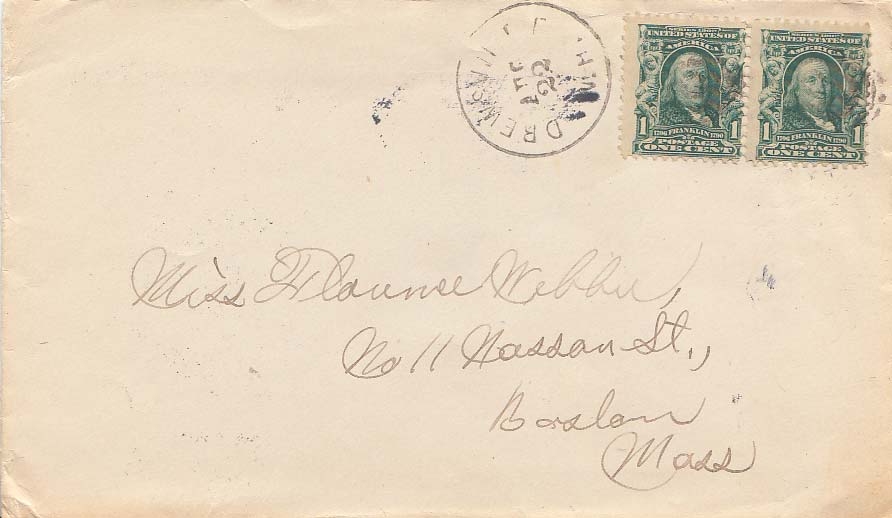 DREWSVILLE N.H.
22
SERIES 1902
UNITED STATES OF
AMERICA
1 1706 FRANKLIN 1790 1
POSTAGE
ONE CENT
SERIES 1902
UNITED STATES OF
AMERICA
1 1706 FRANKLIN 1790 1
POSTAGE
ONE CENT
Miss Florence Webber,
No 11 Nassau St.,
Boston
Mass